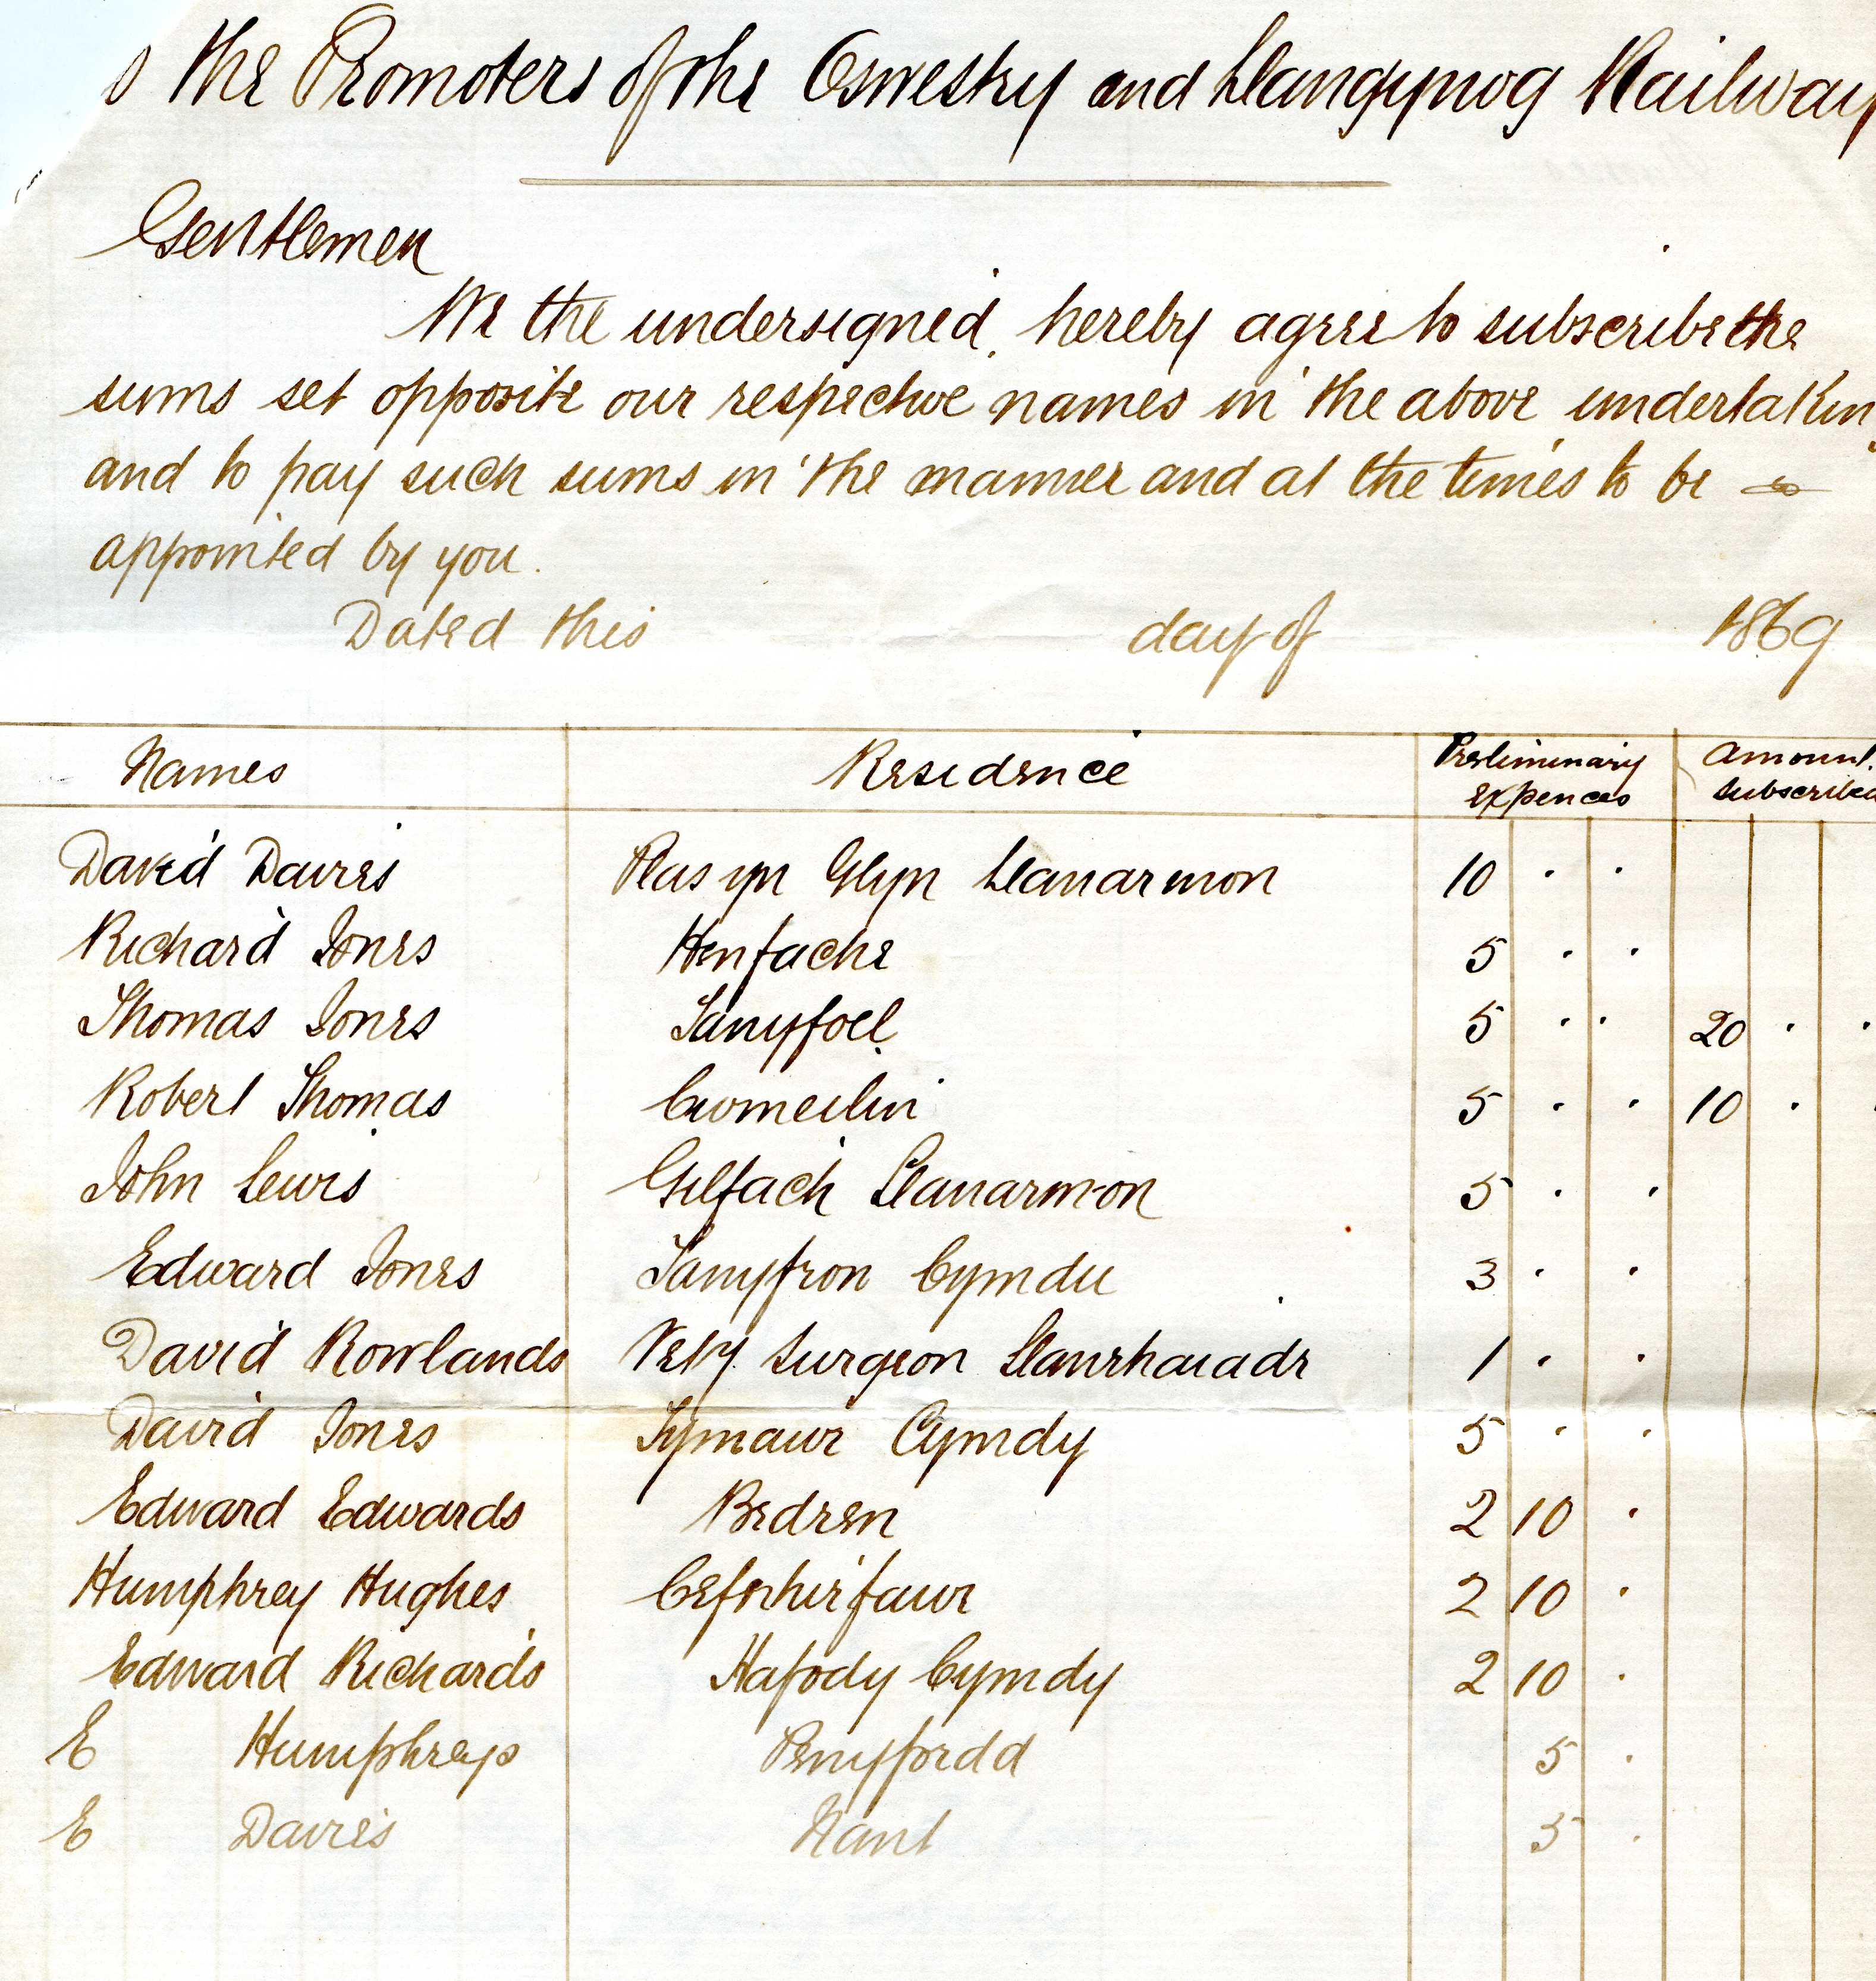 o the Promoters of the Oswestry and Llangynog Railway
Gentlemen
We the undersigned, hereby agree to subscribe the
sums set opposite our respective names in the above undertakin
and to pay such sums in the manner and at the times to be
appointed by you.
Dated this day of 1869
Names Residence Preliminary Expences Amount Subscribed
David Davies Plas yn Glyn Llanarmon 10 . .
Richard Jones Henfache 5 . .
Thomas Jones Tanyfoel 5 . . 20 . .
Robert Thomas Cwmeilin 5 . . 10 . .
John Lewis Gilfach Llanarmon 5 . .
Edward Jones Tanyfron Cymdu 3 . .
David Rowlands Vety. Surgeon Llanrhaiadr 1 . .
David Jones Tymawr Cymdy 5 . .
Edward Edwards Bedren 2 10 .
Humphrey Hughes Cefnhirfawr 2 10 .
Edward Richards Hafody Cymdy 2 10 .
E Humphreys Penyffordd 5 .
E Davies Nant 5 .